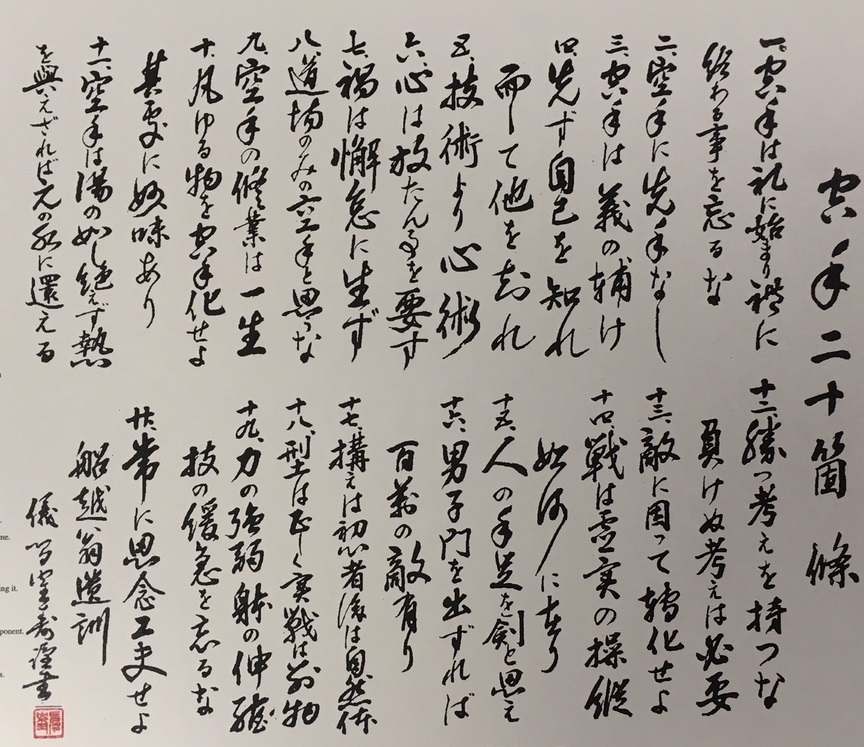 空手二十箇條
一、空手は礼に始まり禮に
終わる事を忘るな
二、空手に先手なし
三、空手は義の輔け
四、先ず自己を知れ
而して他を知れ
五、技術より心術
六、心は放たん事を要す
七、禍は懈怠に生ず
八、道場のみの空手と思うな
九、空手の修業は一生
十、凡ゆる物を空手化せよ
其処に妙味あり
十一、空手は湯の如し絶えず熱
を與えざれば元の水に還える
十二、勝つ考えを持つな
負けぬ考えは必要
十三、敵に因って轉化せよ
十四、戦は虚実の操縦
如何に在り
十五、人の手足を剣と思え
十六、男子門を出ずれば
百萬の敵有り
十七、構えは初心者後は自然体
十八、型は正しく実戦は別物
十九、力の強弱躰の伸縮
技の緩急を忘るな
廿、常に思念工夫せよ
船越翁遺訓
書
me.
ing it.
ponent.
s.